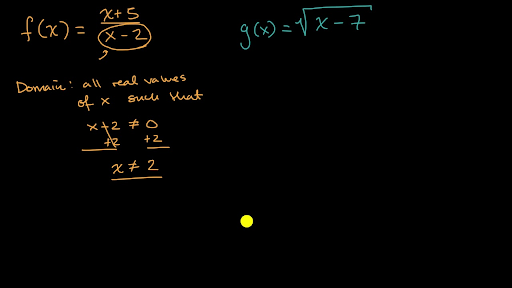 f(x) = x+5 / x-2
g(x) = √x-7
Domain: all real values
of x such that
x-2 ≠ 0
+2 +2
x ≠ 2